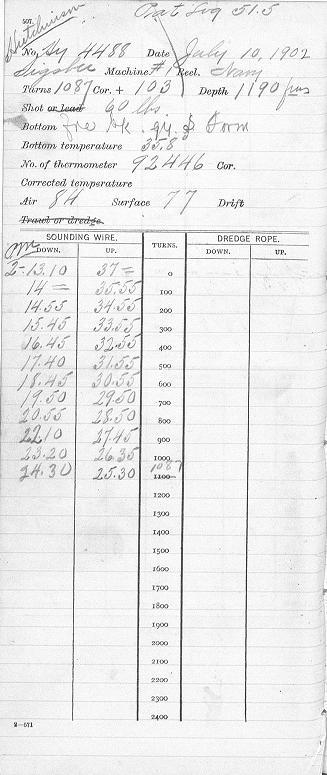 507.
Hutchinson
Pat Log 51.5
No. Hy 4488 Date July 10, 1902
Sigsbee Machine #1 Reel. Navy
Turns 1087 Cor. + 103 Depth 1190 fms
Shot or lead 60 lbs
Bottom fne bk. gy. S Form
Bottom temperature 35.8
No. of thermometer 92446 Cor.
Corrected temperature
Air 84 Surface 77 Drift
Trawl or dredge.
SOUNDING WIRE. TURNS. DREDGE ROPE.
DOWN. UP. DOWN. UP.
pm
2-13.10 37= 0
14= 35.55 100
14.55 34.55 200
15.45 33.55 300
16.45 32.55 400
17.40 31.55 500
18.45 30.55 600
19.50 29.50 700
20.55 28.50 800
22.10 27.45 900
23.20 26.35 1000
24.30 25.30 1087 1100
1200
1300
1400
1500
1600
1700
1800
1900
2000
2100
2200
2300
2400
2—571